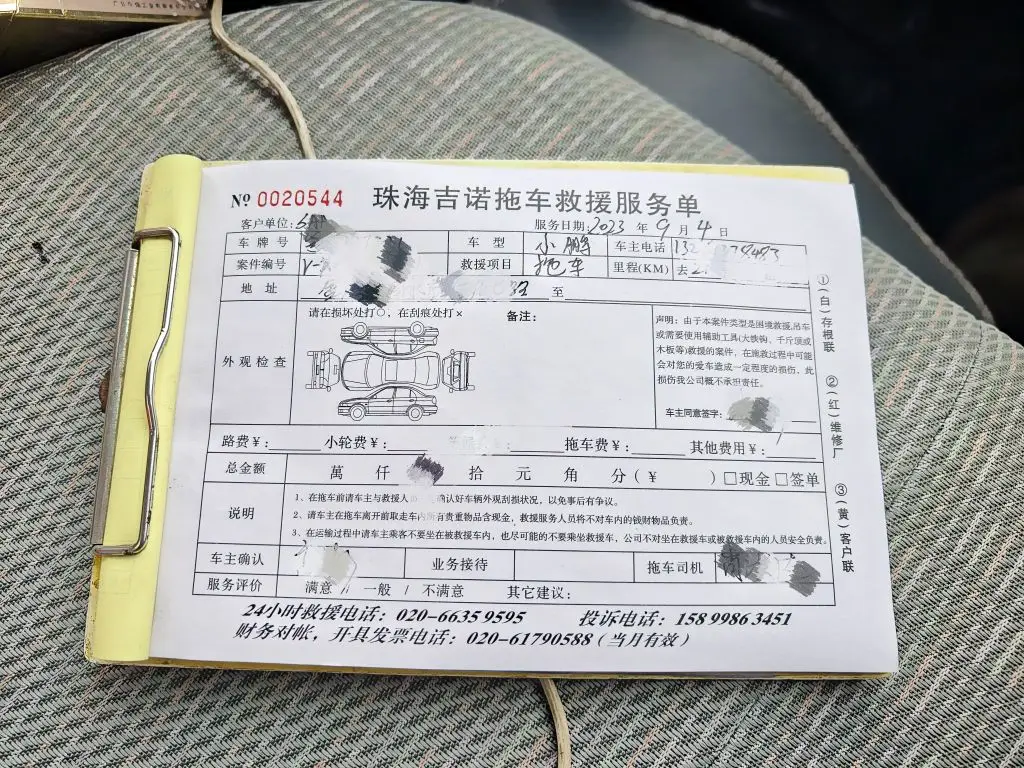 № 0020544 珠海吉诺拖车救援服务单
客户单位: 服务日期: 2023 年 9 月 4 日
车牌号 车型 小鹏 车主电话
案件编号 救援项目 拖车 里程(KM) 去
地址 至
外观检查 请在损坏处打○,在刮痕处打× 备注:
声明:由于本案件类型是困境救援,吊车
或需要使用辅助工具(大铁钩、千斤顶或
木板等)救援的案件,在施救过程中可能
会对您的爱车造成一定程度的损伤,此
损伤我公司概不承担责任。
车主同意签字:
路费¥: 小轮费¥: 拖车费¥: 其他费用¥:
总金额 萬 仟 拾 元 角 分(¥ ) □现金 □签单
说明
1、在拖车前请车主与救援人 确认好车辆外观刮损状况,以免事后有争议。
2、请车主在拖车离开前取走车内所有贵重物品含现金,救援服务人员将不对车内的钱财物品负责。
3、在运输过程中请车主乘客不要坐在被救援车内,也尽可能的不要乘坐救援车,公司不对坐在救援车或被救援车内的人员安全负责。
车主确认 业务接待 拖车司机
服务评价 满意 / 一般 / 不满意 其它建议:
24小时救援电话:020-6635 9595 投诉电话:158 9986 3451
财务对帐,开具发票电话:020-61790588(当月有效)
①(白)存根联
②(红)维修厂
③(黄)客户联